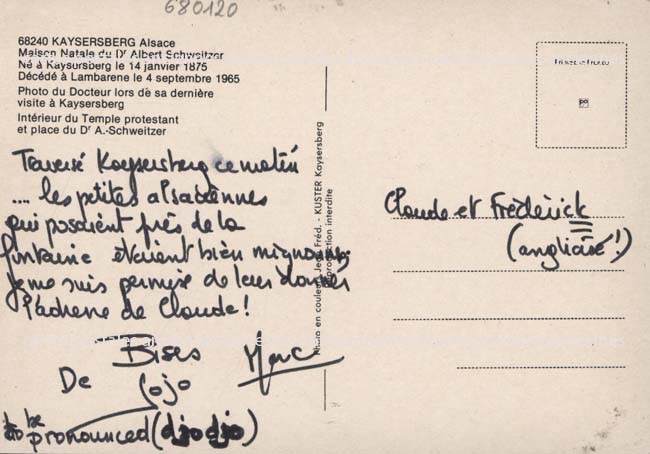 680120
68240 KAYSERSBERG Alsace
Maison Natale du Dr Albert Schweitzer
Né à Kaysersberg le 14 janvier 1875
Décédé à Lambarene le 4 septembre 1965
Photo du Docteur lors de sa dernière
visite à Kaysersberg
Intérieur du Temple protestant
et place du Dr A.-Schweitzer
Traversé Kaysersberg ce matin
.... les petites alsaciennes
qui posaient près de la
fontaine étaient bien mignonnes
je me suis permise de leur donner
l'adresse de Claude !
Bises Marc
De Jojo
to be
pronounced (djodjo)
Photo en couleurs Jean Fréd. - KUSTER Kaysersberg
Reproduction interdite
Claude et Frédérick
(anglicisé !)